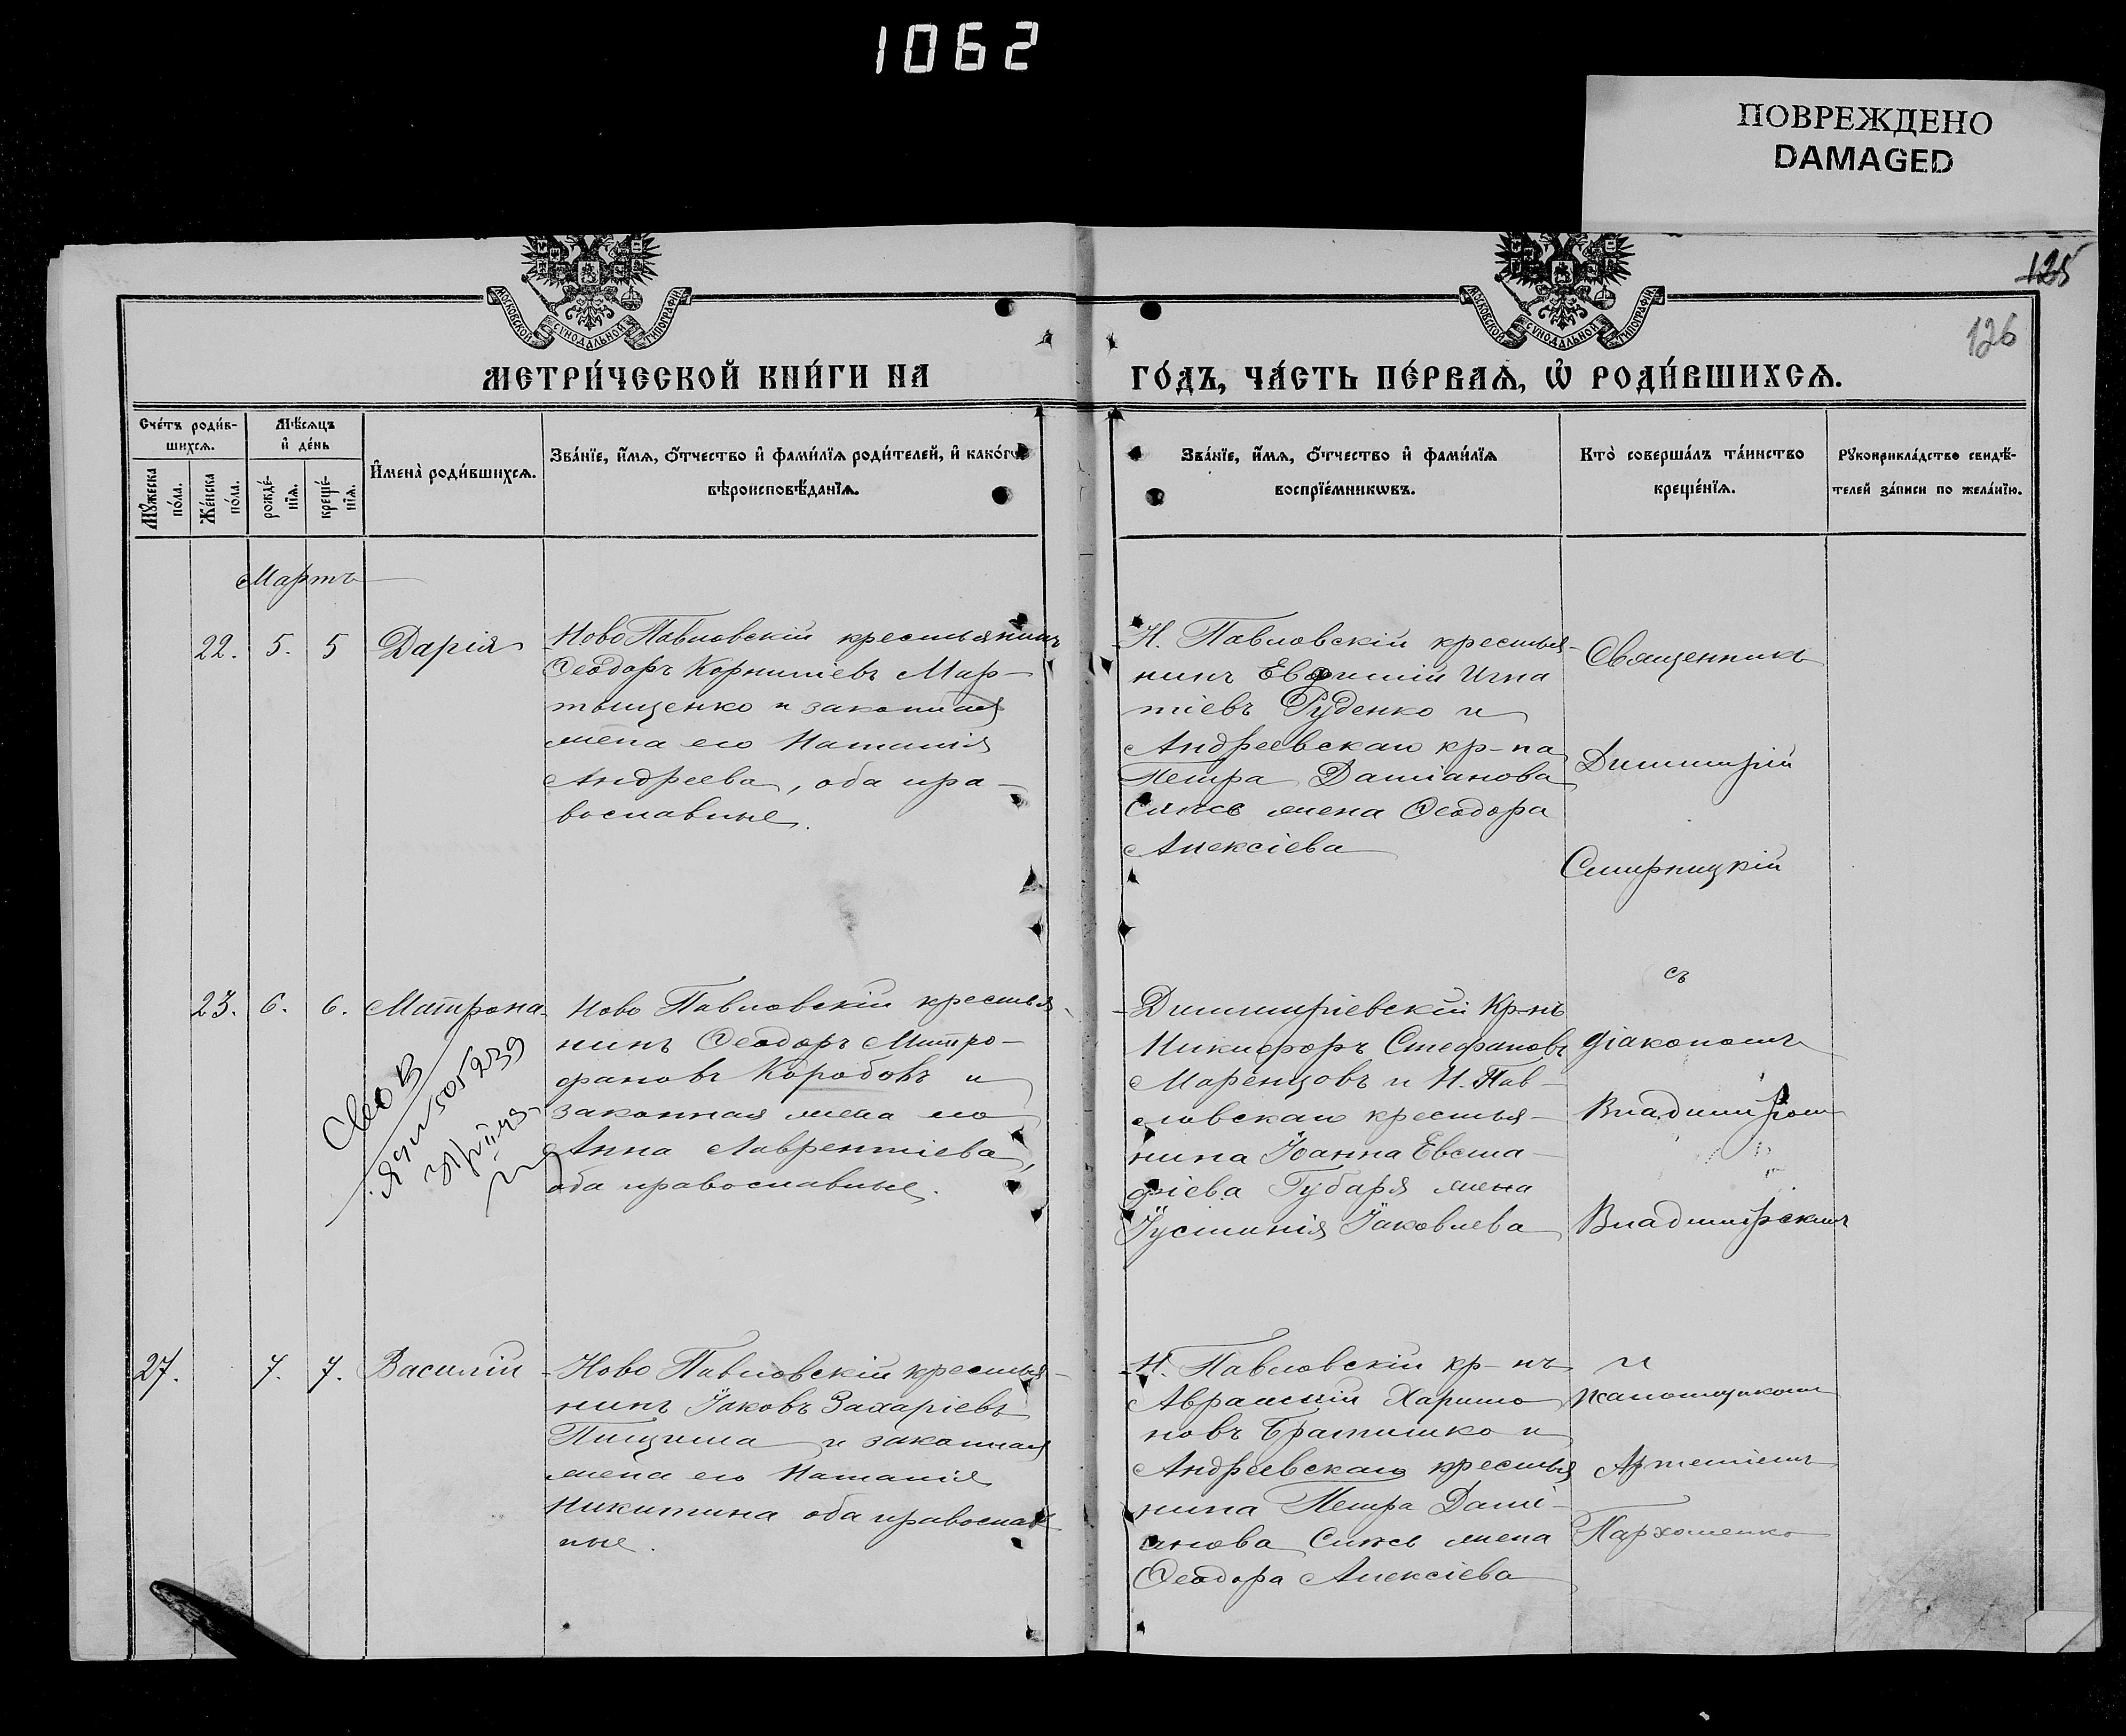 1062
ПОВРЕЖДЕНО
DAMAGED
МОСКОВСКОЙ СѴНОДАЛЬНОЙ ТИПОГРАФІИ
МОСКОВСКОЙ СѴНОДАЛЬНОЙ ТИПОГРАФІИ
125
126
МЕТРИ́ЧЕСКОЙ КНИ́ГИ НА
ГО́ДЪ, ЧА́СТЬ ПЕ́РВАѦ, Ѡ҆ РОДИ́ВШИХСѦ.
Сче́тъ роди́в-
шихсѧ.
Мѣ́сѧцъ
и҆ де́нь
Мꙋ́жеска
по́ла.
Же́нска
по́ла.
рожде́-
нїѧ.
креще́-
нїѧ.
И҆мена̀ роди́вшихсѧ.
Зва́нїе, и҆́мѧ, ѻ҆́тчество и҆ фами́лїѧ роди́телей, и҆ како́гѡ
вѣроисповѣ́данїѧ.
Зва́нїе, и҆́мѧ, ѻ҆́тчество и҆ фами́лїѧ
воспрїе́мникѡвъ.
Кто̀ соверша́лъ та́инство
креще́нїѧ.
Рꙋкоприкла́дство свидѣ́-
телей за́писи по жела́нїю.
Мартъ
22. 5. 5 Дарія
Ново Павловскій крестьянинъ
Ѳеодоръ Корниліевъ Мар-
тыщенко и законная
жена его Наталія
Андреева, оба пра-
вославные.
Н. Павловскій крестья-
нинъ Евфимій Игна
тіевъ Руденко и
Андреевская кр-на
Петра Даміанова
жена Ѳеодора
Алексіева
Священникъ
Димитрій
Смирницкій
23. 6. 6. Матрона
505239
Ново Павловскій крестья-
нинъ Ѳеодоръ Митро-
фановъ Коробовъ и
законная жена его
Анна Лаврентіева,
оба православные.
Димитріевскій Кр-нъ
Никифоръ Стефановъ
Маренцовъ и Н. Пав-
ловская крестья-
нина Іоанна Евста-
фіева Губаря жена
Іустинія Іаковлева
съ
діакономъ
Владиміромъ
Владимірскимъ
27. 7. 7. Василій
Ново Павловскій крестья-
нинъ Іаковъ Захаріевъ
и законная
жена его Наталія
Никитина оба православ
ные.
Н. Павловскій кр-нъ
Авраамій Харито
новъ Братишко и
Андреевская крестья
нина Петра Дамі-
анова жена
Ѳеодора Алексіева
и
псаломщикомъ
Артеміемъ
Пархоменко